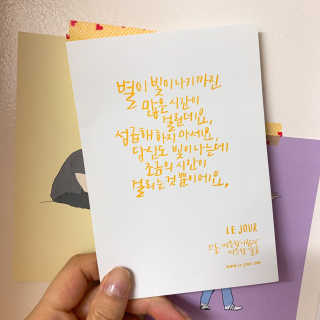 별이 빛이 나기까진
많은 시간이
걸린데요,
섭급해 하지 아세요,
당신도 빛이 나는데
조금의 시간이
걸리는것 뿐이에요,
LE JOUR